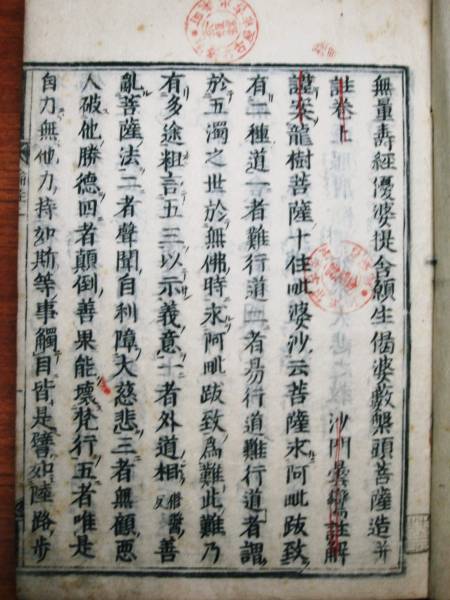 無量壽經優婆提舍願生偈婆藪槃頭菩薩造并
註卷上　　　　　　　沙門曇鸞註解
謹案龍樹菩薩十住毗婆沙云菩薩求阿毗跋致
有二種道一者難行道二者易行道難行道者謂
於五濁之世於無佛時求阿毗跋致爲難此難乃
有多途粗言五三以示義意一者外道相善
亂菩薩法二者聲聞自利障大慈悲三者無顧惡
人破他勝德四者顛倒善果能壞梵行五者唯是
自力無他力持如斯等事觸目皆是譬如陸路步